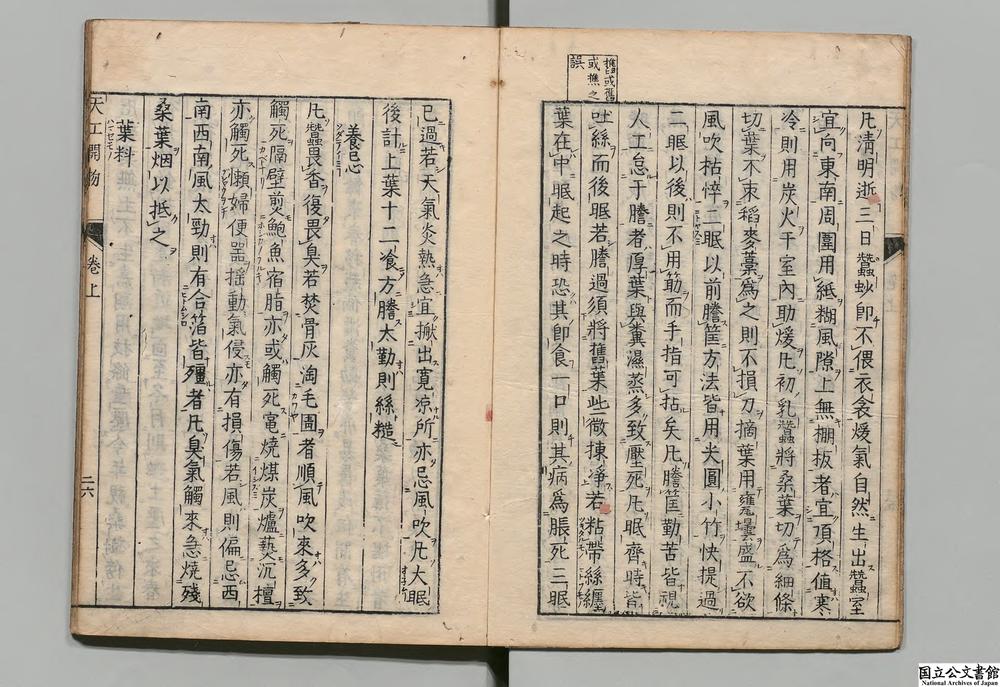 凡清明逝三日蠶𧉮卽不偎衣衾煖氣自然生出蠶室
宜向東南周圍用紙糊風隙上無棚板者宜頂格值寒
冷則用炭火于室內助煖凡初乳蠶將桑葉切爲細條
切葉不束稻麥藁爲之則不損刀摘葉用甕壜盛不欲
風吹枯悴二眠以前謄筐方法皆用尖圓小竹快提過
二眠以後則不用筯而手指可拈矣凡謄筐勤苦皆視
人工怠于謄者厚葉與糞濕蒸多致壓死凡眠齊時皆
吐絲而後眠若謄過須將舊葉些微揀淨若粘帶絲纏
葉在中眠起之時恐其卽食一口則其病爲脹死三眠
或舊
或樵之
誤
已過若天氣炎熱急宜搬出寬凉所亦忌風吹凡大眠
後計上葉十二飡方謄太勤則絲糙
養忌
凡蠶畏香復畏臭若焚骨灰淘毛圊者順風吹來多致
觸死隔壁煎鮑魚宿脂亦或觸死竈燒煤炭爐爇沉檀
亦觸死懶婦便器搖動氣侵亦有損傷若風則偏忌西
南西南風太勁則有合箔皆殭者凡臭氣觸來急燒殘
桑葉烟以抵之
葉料
天工開物
卷上
二六
国立公文書館
National Archives of Japan